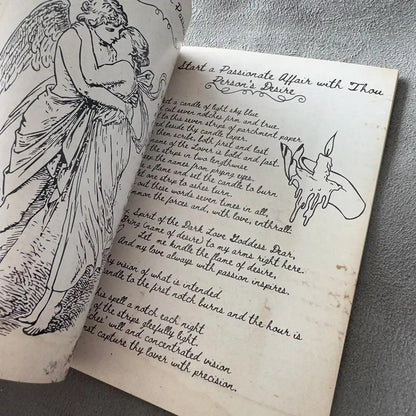 Start a Passionate Affair with Thou
Person's Desire
a candle of light sky blue
cut seven notches firm and true.
to this seven strips of parchment paper
beside thy candle taper.
then scribe, both first and last
name of the Lover is bold and fast.
the strips in two lengthwise
the names from prying eyes.
a flame and set the candle to burn
one strip to ashes turn.
out these words seven times in all,
the forces and, with love, enthrall:
Spirit of the Dark Love Goddess Dear,
Bring (name of desire) to my arms right here.
Let me kindle the flame of desire,
And my love always with passion inspires.
thy vision of what is intended
candle to the first notch burns and the hour is
this spell a notch each night
of the strips gleefully light.
will and concentrated vision
capture thy lover with precision.